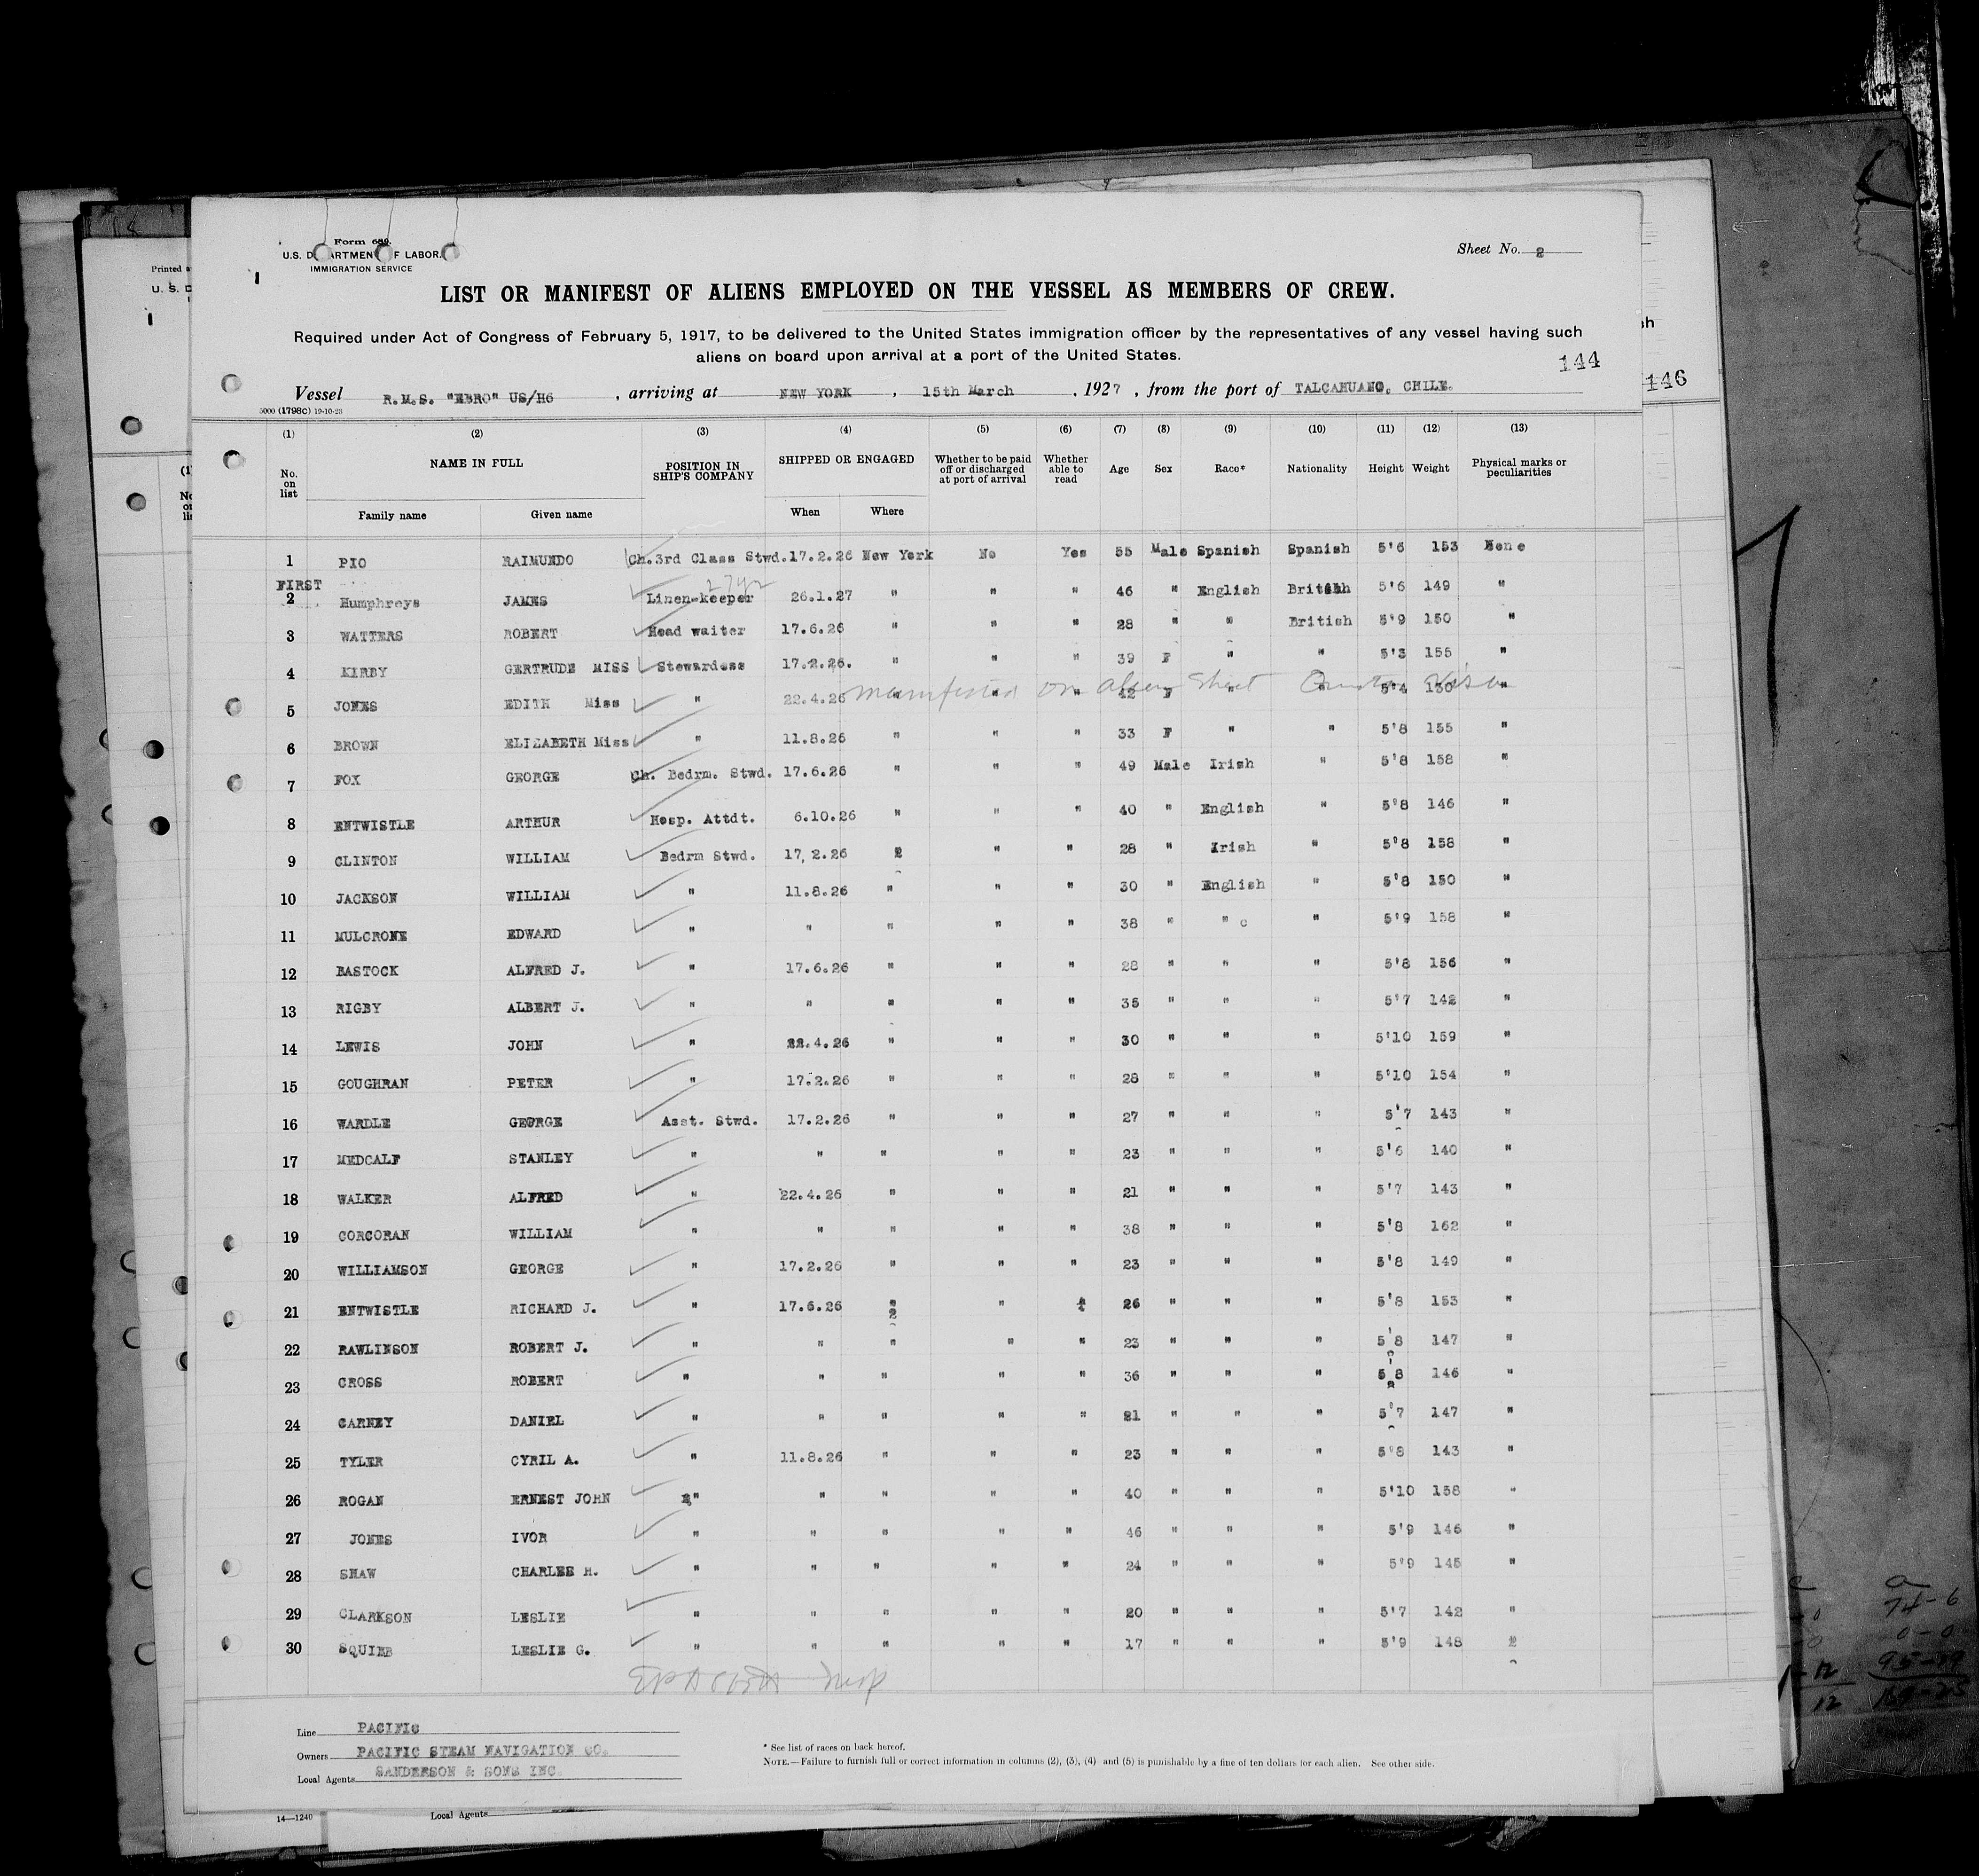 Form 689.
U.S. DEPARTMENT OF LABOR.
IMMIGRATION SERVICE
Sheet No. 2
LIST OR MANIFEST OF ALIENS EMPLOYED ON THE VESSEL AS MEMBERS OF CREW.
Required under Act of Congress of February 5, 1917, to be delivered to the United States immigration officer by the representatives of any vessel having such
aliens on board upon arrival at a port of the United States.
144
146
Vessel R.M.S. "EBRO" US/H6 , arriving at NEW YORK , 15th March , 1927 , from the port of TALCAHUANO, CHILE.
5000 (1798C) 19-10-23
(1) (2) (3) (4) (5) (6) (7) (8) (9) (10) (11) (12) (13)
No. on list NAME IN FULL POSITION IN SHIP'S COMPANY SHIPPED OR ENGAGED Whether to be paid off or discharged at port of arrival Whether able to read Age Sex Race* Nationality Height Weight Physical marks or peculiarities
Family name Given name When Where
1 PIO RAIMUNDO Ch.3rd Class Stwd. 17.2.26 New York No Yes 55 Male Spanish Spanish 5'6 153 None
FIRST
2 Humphreys JAMES Linen-keeper 26.1.27 " " " 46 " English British 5'6 149 "
3 WATTERS ROBERT Head waiter 17.6.26 " " " 28 " " British 5'9 150 "
4 KIRBY GERTRUDE MISS Stewardess 17.2.26. " " " 39 F " " 5'3 155 "
manifested on alien Sheet Quota Visa
5 JONES EDITH Miss " 22.4.26 " " " 42 F " " 5'4 130 "
6 BROWN ELIZABETH Miss " 11.8.26 " " " 33 F " " 5'8 155 "
7 FOX GEORGE Ch. Bedrm. Stwd. 17.6.26 " " " 49 Male Irish " 5'8 158 "
8 ENTWISTLE ARTHUR Hosp. Attdt. 6.10.26 " " " 40 " English " 5'8 146 "
9 CLINTON WILLIAM Bedrm Stwd. 17,2.26 " " " 28 " Irish " 5'8 158 "
10 JACKSON WILLIAM " 11.8.26 " " " 30 " English " 5'8 150 "
11 MULCRONE EDWARD " " " " " 38 " " c " 5'9 158 "
12 BASTOCK ALFRED J. " 17.6.26 " " " 28 " " " 5'8 156 "
13 RIGBY ALBERT J. " " " " " 35 " " " 5'7 142 "
14 LEWIS JOHN " 22.4.26 " " " 30 " " " 5'10 159 "
15 GOUGHRAN PETER " 17.2.26 " " " 28 " " " 5'10 154 "
16 WARDLE GEORGE Asst. Stwd. 17.2.26 " " " 27 " " " 5'7 143 "
17 MEDCALF STANLEY " " " " " 23 " " " 5'6 140 "
18 WALKER ALFRED " 22.4.26 " " " 21 " " " 5'7 143 "
19 CORCORAN WILLIAM " " " " " 38 " " " 5'8 162 "
20 WILLIAMSON GEORGE " 17.2.26 " " " 23 " " " 5'8 149 "
21 ENTWISTLE RICHARD J. " 17.6.26 " " " 26 " " " 5'8 153 "
22 RAWLINSON ROBERT J. " " " " " 23 " " " 5'8 147 "
23 CROSS ROBERT " " " " " 36 " " " 5'8 146 "
24 CARNEY DANIEL " " " " " 21 " " " 5'7 147 "
25 TYLER CYRIL A. " 11.8.26 " " " 23 " " " 5'8 143 "
26 ROGAN ERNEST JOHN " " " " " 40 " " " 5'10 158 "
27 JONES IVOR " " " " " 46 " " " 5'9 146 "
28 SHAW CHARLES H. " " " " " 24 " " " 5'9 145 "
29 CLARKSON LESLIE " " " " " 20 " " " 5'7 142 "
30 SQUIEB LESLIE G. " " " " " 17 " " " 5'9 148 "
Line PACIFIC
Owners PACIFIC STEAM NAVIGATION CO.
Local Agents SANDERSON & SONS INC.
* See list of races on back hereof.
NOTE.—Failure to furnish full or correct information in columns (2), (3), (4) and (5) is punishable by a fine of ten dollars for each alien. See other side.
14—1240
Local Agents